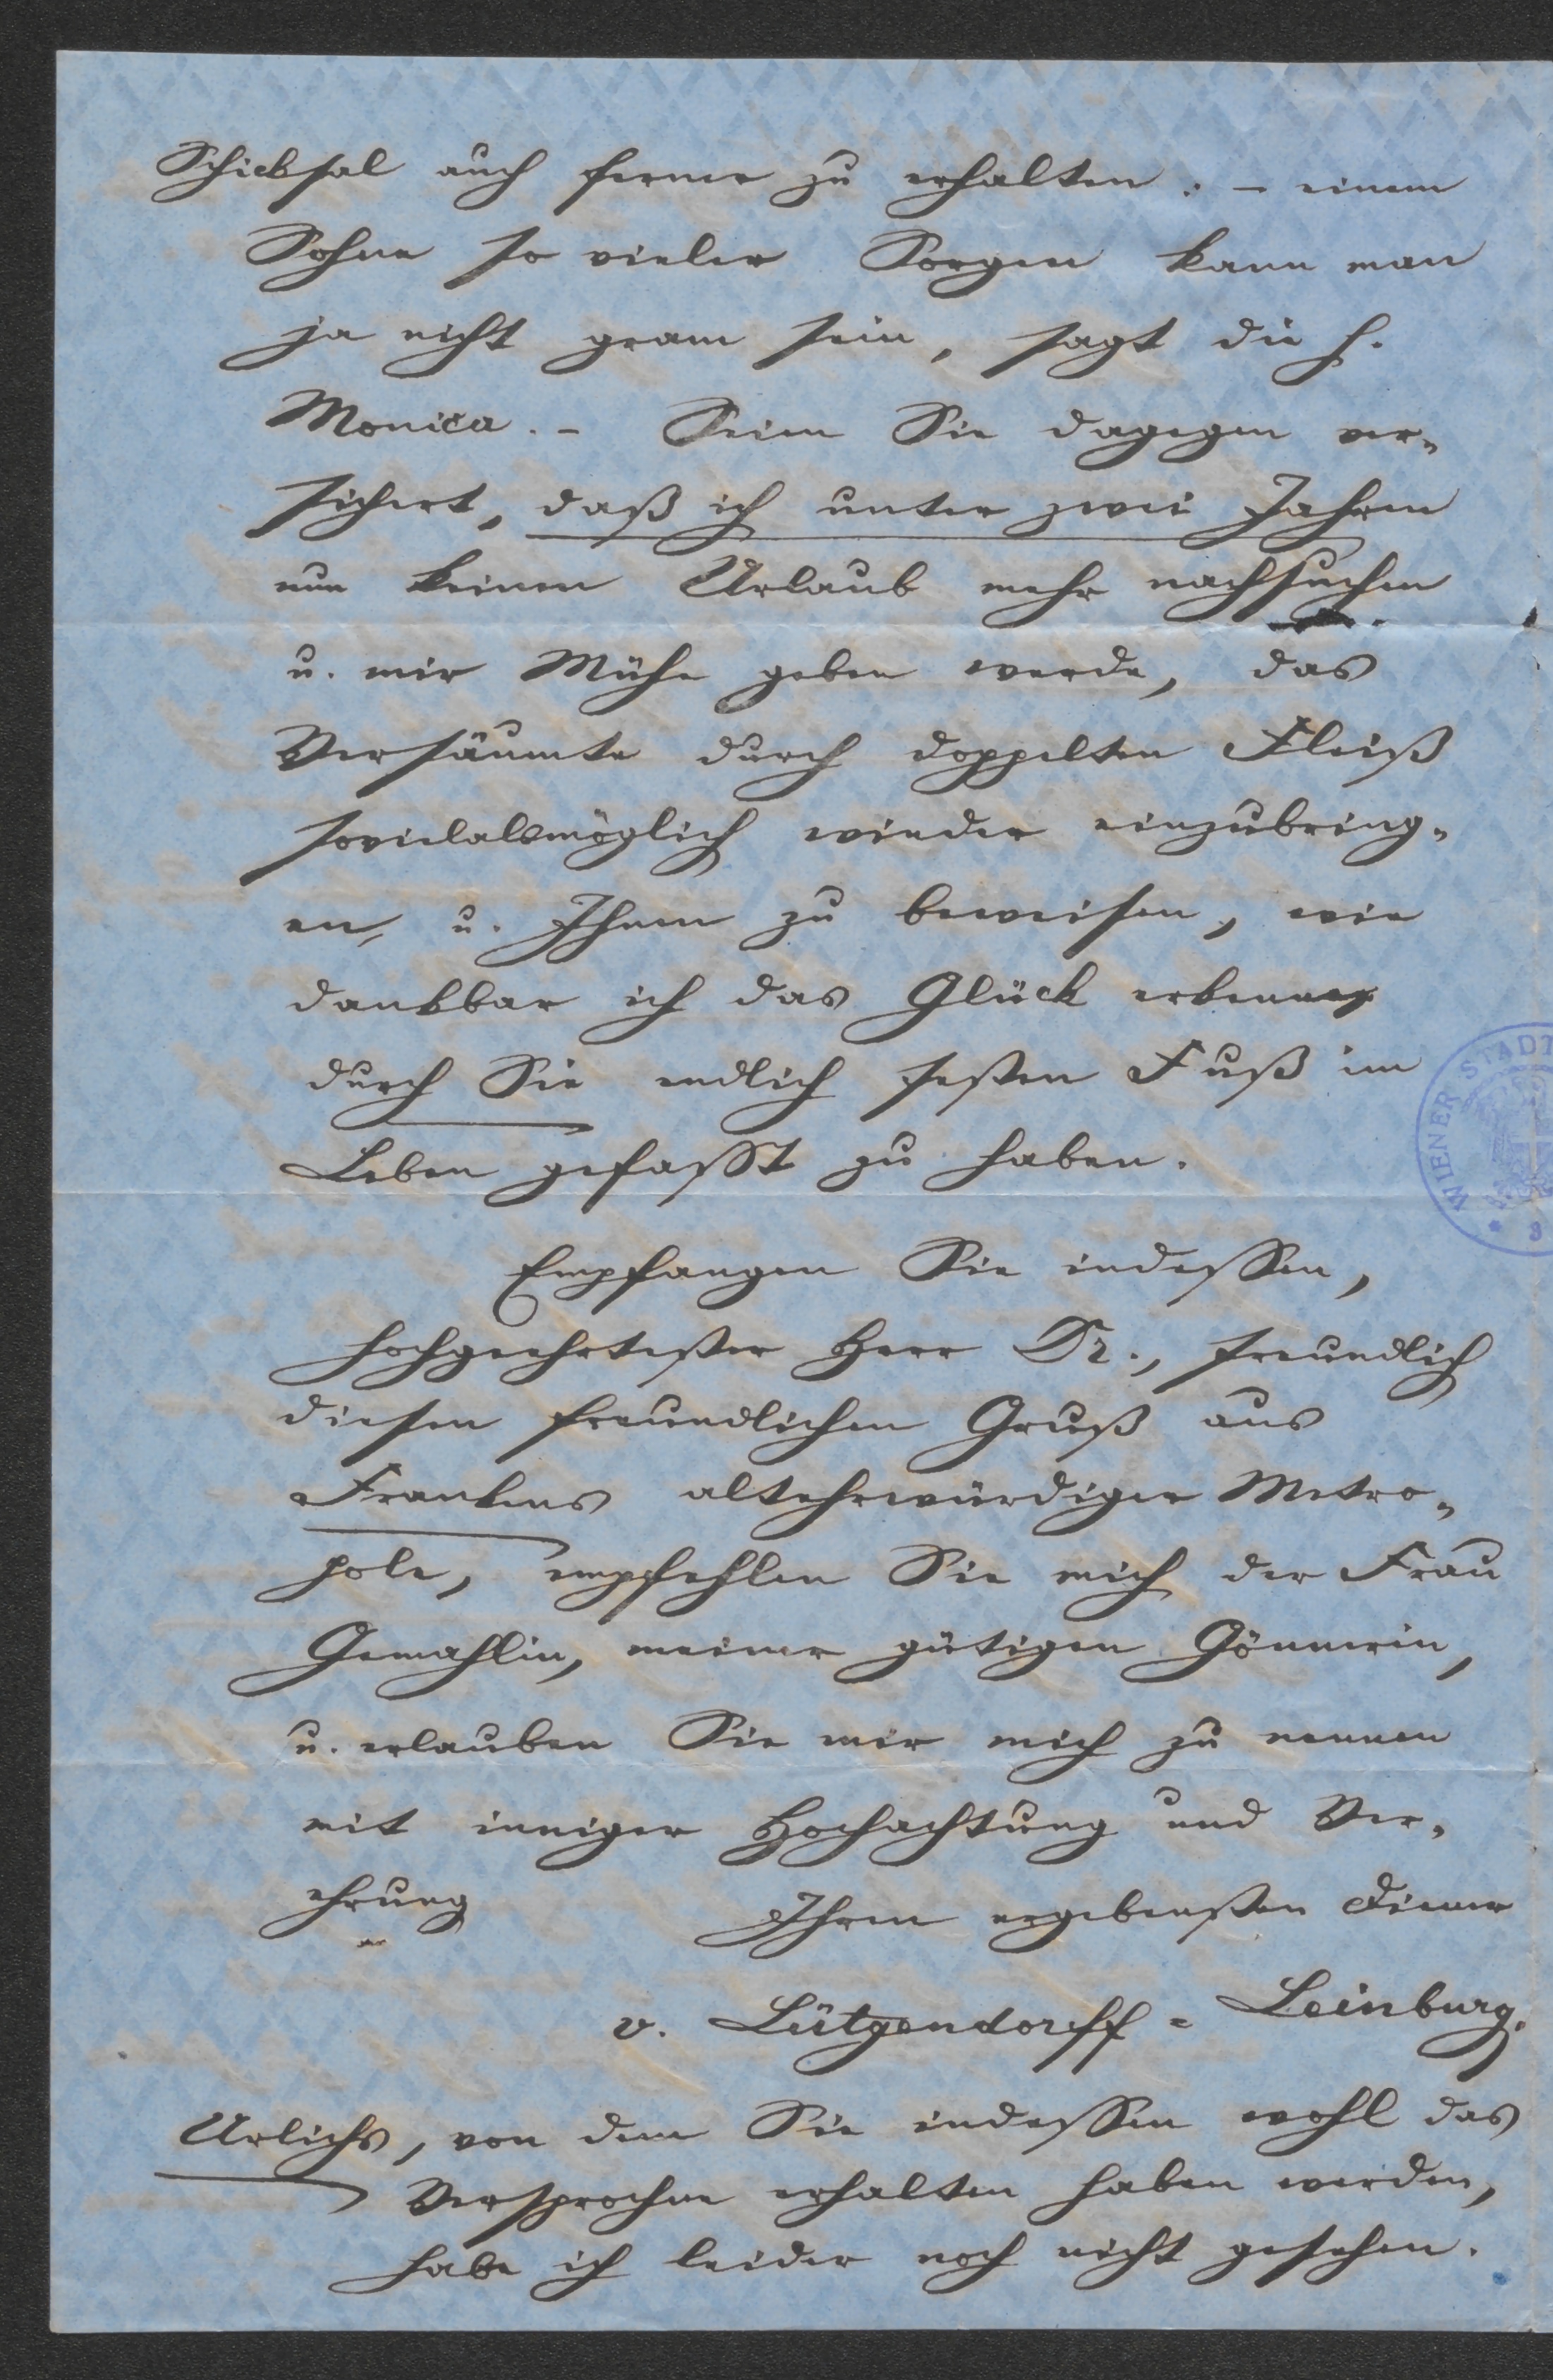 Schicksal auch ferner zu erhalten: – einem
Sohne so vieler Sorgen kann man
ja nicht gram sein, sagt die h.
Monica. – Seien Sie dagegen ver-
sichert, daß ich unter zwei Jahren
nun keinen Urlaub mehr nachsuchen
u. mir Mühe geben werde, das
Versäumte durch doppelten Fleiß
sovielalsmöglich wieder einzubring-
en, u. Ihnen zu beweisen, wie
dankbar ich das Glück erkenne,
durch Sie endlich festen Fuß im
Leben gefasst zu haben.
Empfangen Sie indessen,
hochgeehrtester Herr Dr., freundlich
diesen freundlichen Gruß aus
Frankens altehrwürdiger Metro-
pole, empfehlen Sie mich der Frau
Gemahlin, meiner gütigen Gönnerin,
u. erlauben Sie mir mich zu nennen
mit inniger Hochachtung und Ver-
ehrung
Ihren ergebensten Diener
v. Lütgendorff = Leinburg.
Urlichs, von dem Sie indessen wohl das
Versprochne erhalten haben werden,
habe ich leider noch nicht gesehen.
WIENER STADT